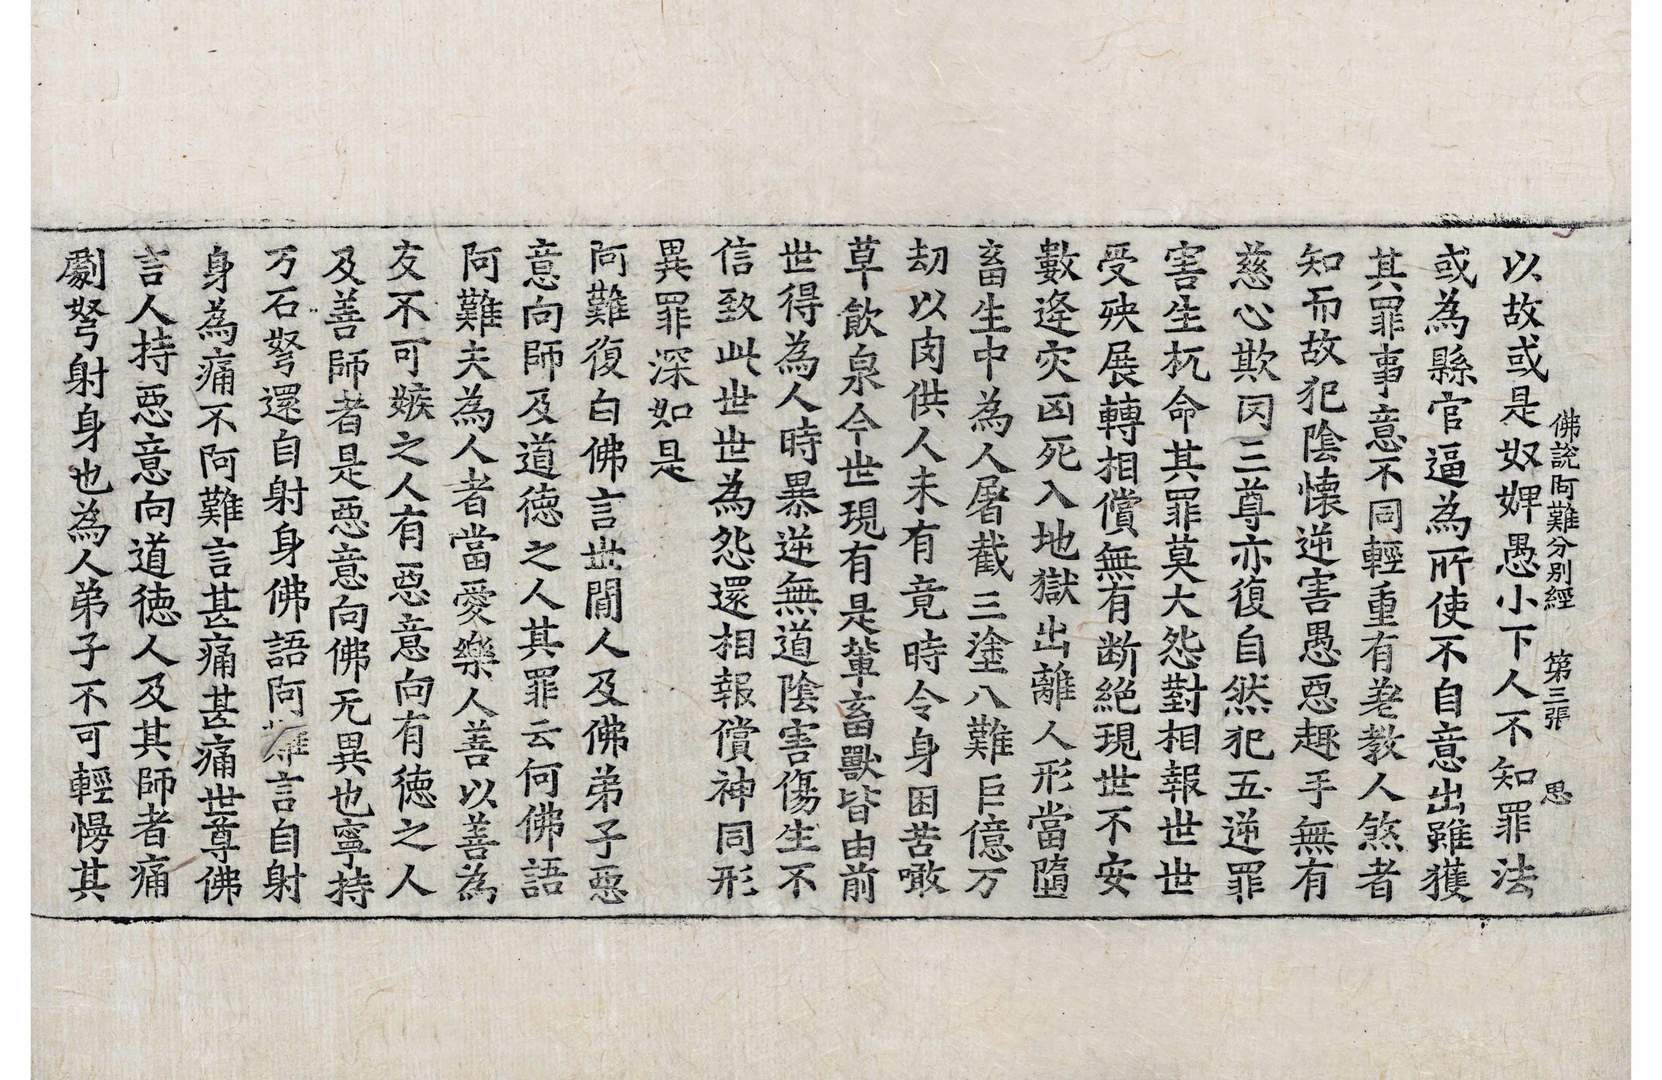 佛說阿難分別經　第三張　思
以故或是奴婢愚小下人不知罪法
或為縣官逼為所使不自意出雖獲
其罪事意不同輕重有差教人煞者
知而故犯陰懐逆害愚惡趣手無有
慈心欺罔三尊亦復自然犯五逆罪
害生杌命其罪莫大怨對相報世世
受殃展轉相償無有断絕現世不安
數逄灾凶死入地獄出離人形當墮
畜生中為人屠截三塗八難巨億万
劫以肉供人未有竟時令身困苦噉
草飲泉今世現有是軰畜獸皆由前
世得為人時暴逆無道陰害傷生不
信致此世世為怨還相報償神同形
異罪深如是
阿難復白佛言世間人及佛弟子惡
意向師及道徳之人其罪云何佛語
阿難夫為人者當愛樂人善以善為
友不可嫉之人有惡意向有徳之人
及善師者是惡意向佛无異也寧持
万石弩還自射身佛語阿難言自射
身為痛不阿難言甚痛甚痛世尊佛
言人持惡意向道徳人及其師者痛
劇弩射身也為人弟子不可輕慢其